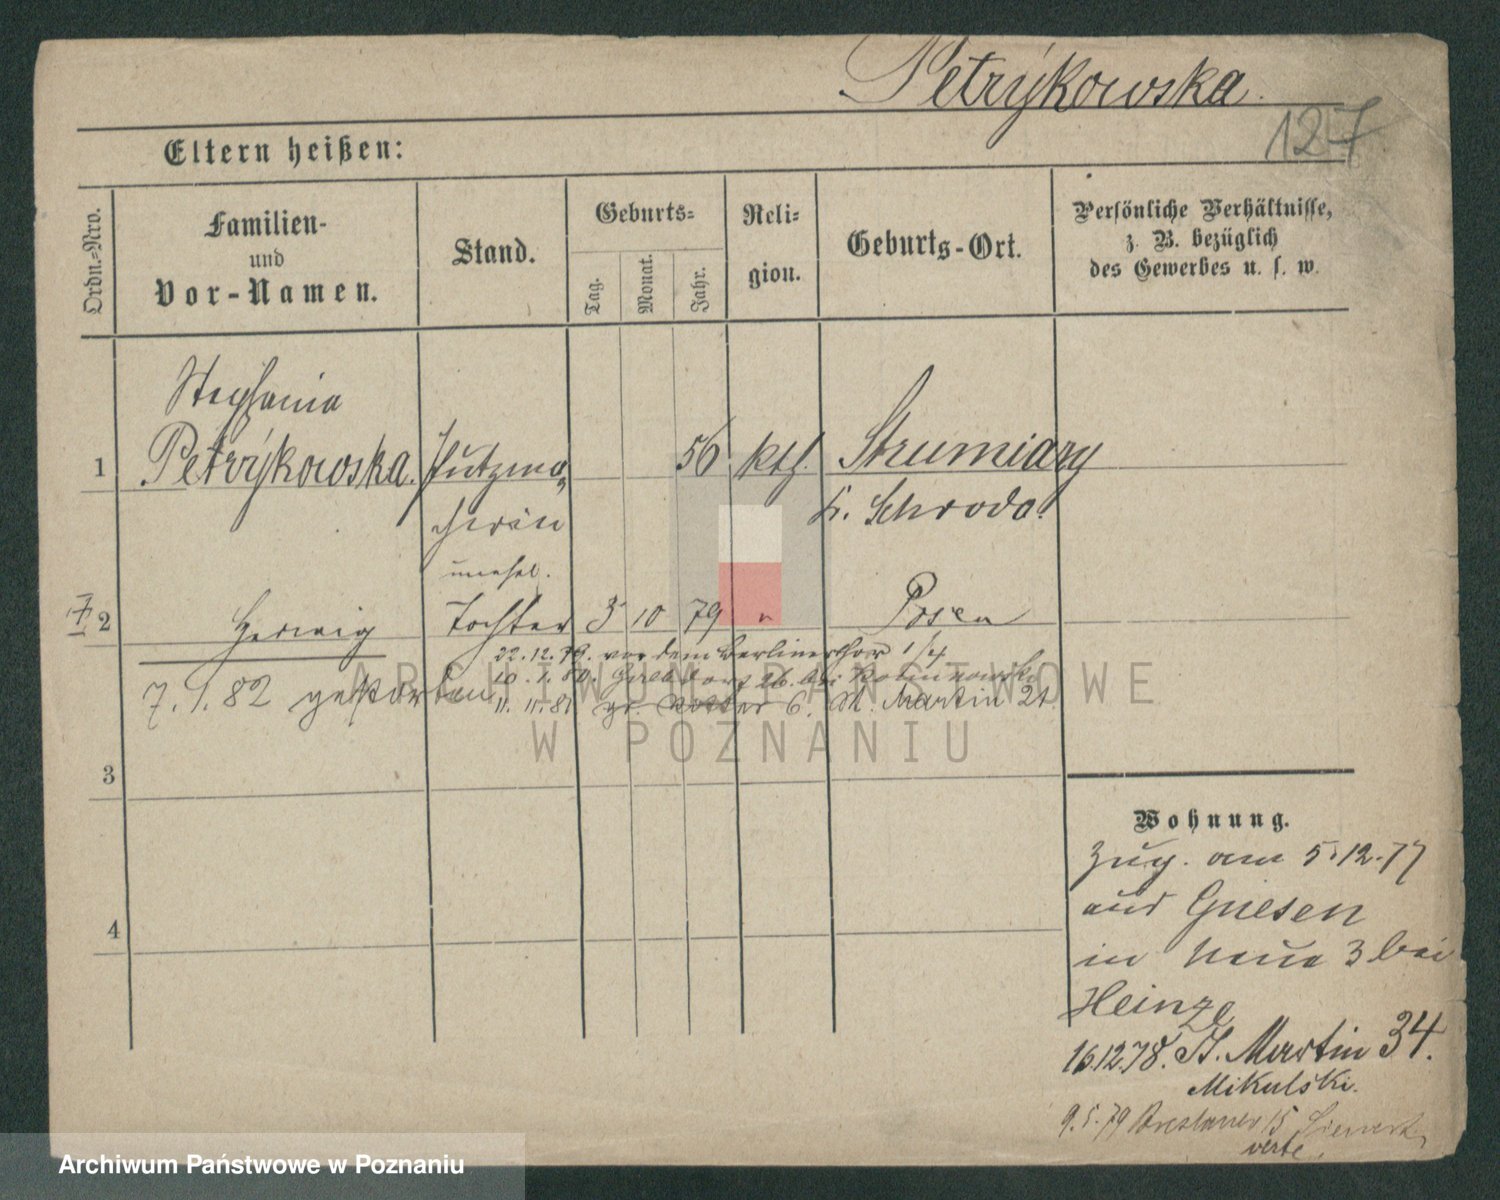 Petrykowska.
127
Eltern heißen:
Ordn.-Nro.
Familien-
und
Vor-Namen.
Stand.
Geburts-
Tag.
Monat.
Jahr.
Reli-
gion.
Geburts-Ort.
Persönliche Verhältnisse,
z. B. bezüglich
des Gewerbes u. s. w.
Stephania
1 Petrykowska. Putzma- 56 kth. Strumiany
cherin K. Schroda.
unehel.
2 Hedwig Tochter 3 10 79 " Posen
22.12.79. vor dem Berlinerthor 1/4
10.1.80. 26. bei
7.1.82 gestorben 11.11.81 gr. Ritter 6. St. Martin 21.
3
4
Wohnung.
Zug. am 5.12.77
aus Gnesen
in Neue 3 bei
Heinze
16.12.78. St. Martin 34.
Mikulski.
9.5.79 Breslauer 15
verte.
ARCHIWUM PAŃSTWOWE
W POZNANIU
Archiwum Państwowe w Poznaniu